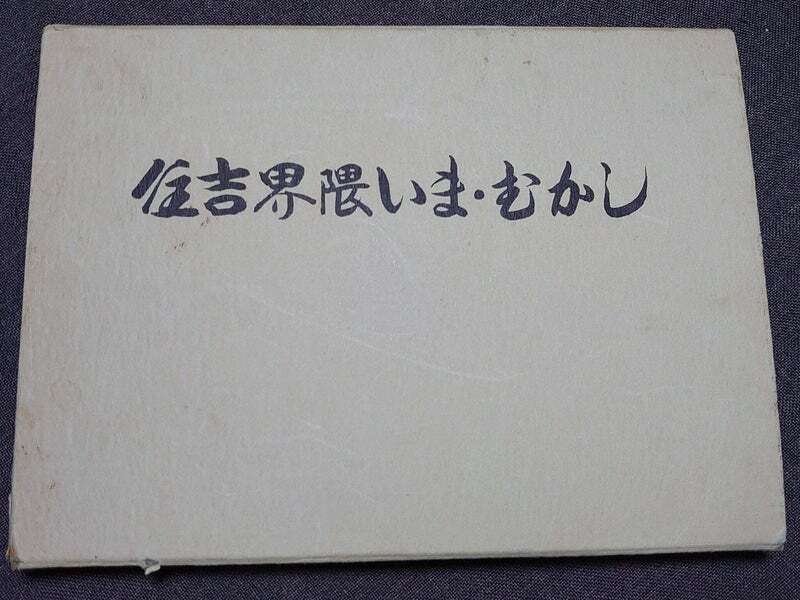 住吉界隈いま・むかし